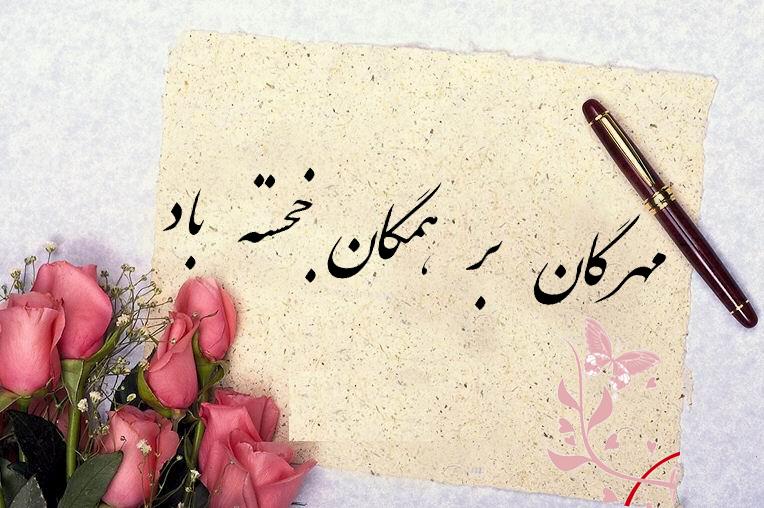 مهرگان بر همگان خجسته باد